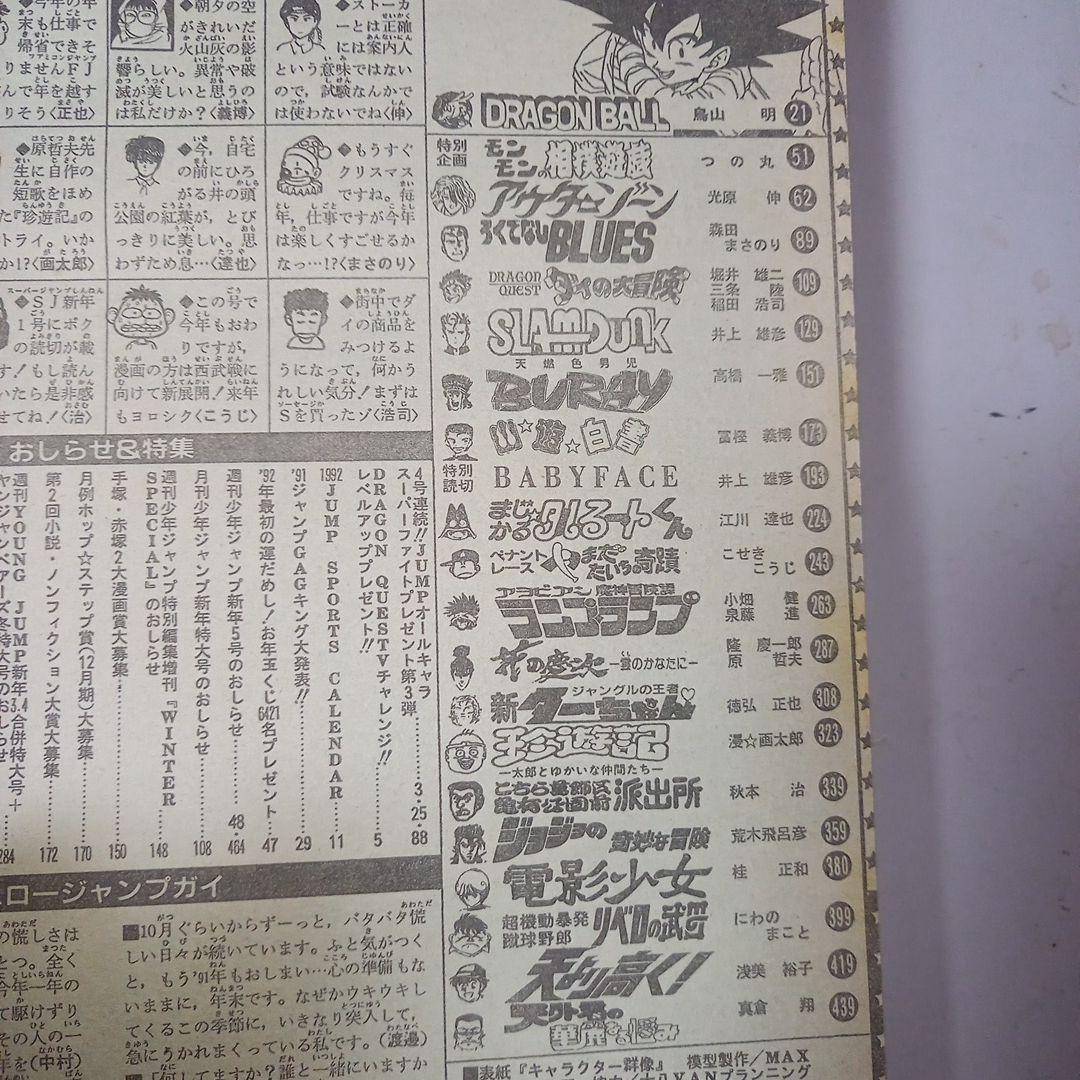 DRAGON BALL 鳥山 明 21
特別企画 モンモンの相撲遊戯 つの丸 51
アウターゾーン 光原 伸 62
ろくでなしBLUES 森田まさのり 89
DRAGON QUEST ダイの大冒険 堀井 雄二 三条 陸 稲田 浩司 109
SLAM DUNK 井上 雄彦 129
天燃色男児 BURAY 高橋 一雅 151
幽☆遊☆白書 冨樫 義博 173
特別読切 BABYFACE 井上 雄彦 193
まじかる☆タルるートくん 江川 達也 224
ペナントレース やまだたいちの奇蹟 こせきこうじ 243
アラビアン魔神冒険譚 ランプ・ランプ 小畑 健 泉藤 進 263
花の慶次 ―雲のかなたに― 隆 慶一郎 原 哲夫 287
新ジャングルの王者ターちゃん♡ 徳弘 正也 308
珍遊記 ―太郎とゆかいな仲間たち― 漫☆画太郎 323
こちら葛飾区亀有公園前派出所 秋本 治 339
ジョジョの奇妙な冒険 荒木飛呂彦 359
電影少女 桂 正和 380
超機動暴発蹴球野郎 リベロの武田 にわのまこと 399
天より高く! 浅美 裕子 419
天外君の華麗なる悩み 真倉 翔 439
■表紙『キャラクター群像』 模型製作/MAX
◆今年の年
末も仕事で
帰省できそ
りませんFJ
んで年を越す
りそう〈正也〉
◆朝夕の空
がきれいだ
火山灰の影
響らしい。異常や破
滅が美しいと思うの
は私だけか?〈義博〉
◆ストーカ
ーとは正確
には案内人
という意味ではない
ので、試験なんかで
は使わないでね〈伸〉
◆原哲夫先
生に自作の
短歌をほめ
た『珍遊記』の
トライ。いか
か!?〈画太郎〉
◆今、自宅
の前にひろ
がる井の頭
公園の紅葉が、とび
っきりに美しい。思
わずため息…〈達也〉
◆もうすぐ
クリスマス
ですね。毎
年、仕事ですが今年
は楽しくすごせるか
なっ…!?〈まさのり〉
◆SJ新年
1号にボク
の読切が載
す!もし読ん
いたら是非感
せてね!〈治〉
◆この号で
今年もおわ
りですが、
漫画の方は西武戦に
向けて新展開!来年
もヨロシク〈こうじ〉
◆街中でダ
イの商品を
みつけるよ
うになって,何かう
れしい気分!まずは
Sを買ったゾ〈浩司〉
おしらせ&特集
4号連続!!JUMPオールキャラ
スーパーファイトプレゼント第3弾……3・25
DRAGON QUEST TVチャレンジ!!
レベルアッププレゼント!!……88
5
1992 JUMP SPORTS CALENDAR……11
'91ジャンプGAGキング大発表!!……29
'92年最初の運だめし!お年玉くじ6421名プレゼント……47
週刊少年ジャンプ新年5号のおしらせ……48
464
月刊少年ジャンプ新年特大号のおしらせ……108
週刊少年ジャンプ特別編集増刊『WINTER
SPECIAL』のおしらせ……148
手塚・赤塚2大漫画賞大募集……150
月例ホップ☆ステップ賞(12月期)大募集……170
第2回小説・ノンフィクション大賞大募集……172
週刊YOUNG JUMP新年3.4合併特大号+
284
ロージャンプガイ
の慌しさは
とつ。全く
今年一年の
て駆けずり
その人の一
年を(中村)
■10月ぐらいからずーっと,バタバタ慌
しい日々が続いています。ふと気がつく
と,もう'91年もおしまい…心の準備もな
いままに,年末です。なぜかウキウキし
てくるこの季節に,いきなり突入して,
急にうかれまくっている私です。(渡邊)
■「何してますか?誰と一緒にいますか